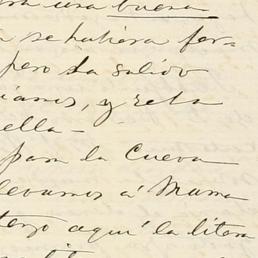 una buena
se hubiera for-
pero ha salido
y esta
ella -
para la Cueva
llevamos á Mama
tengo aquí la litera